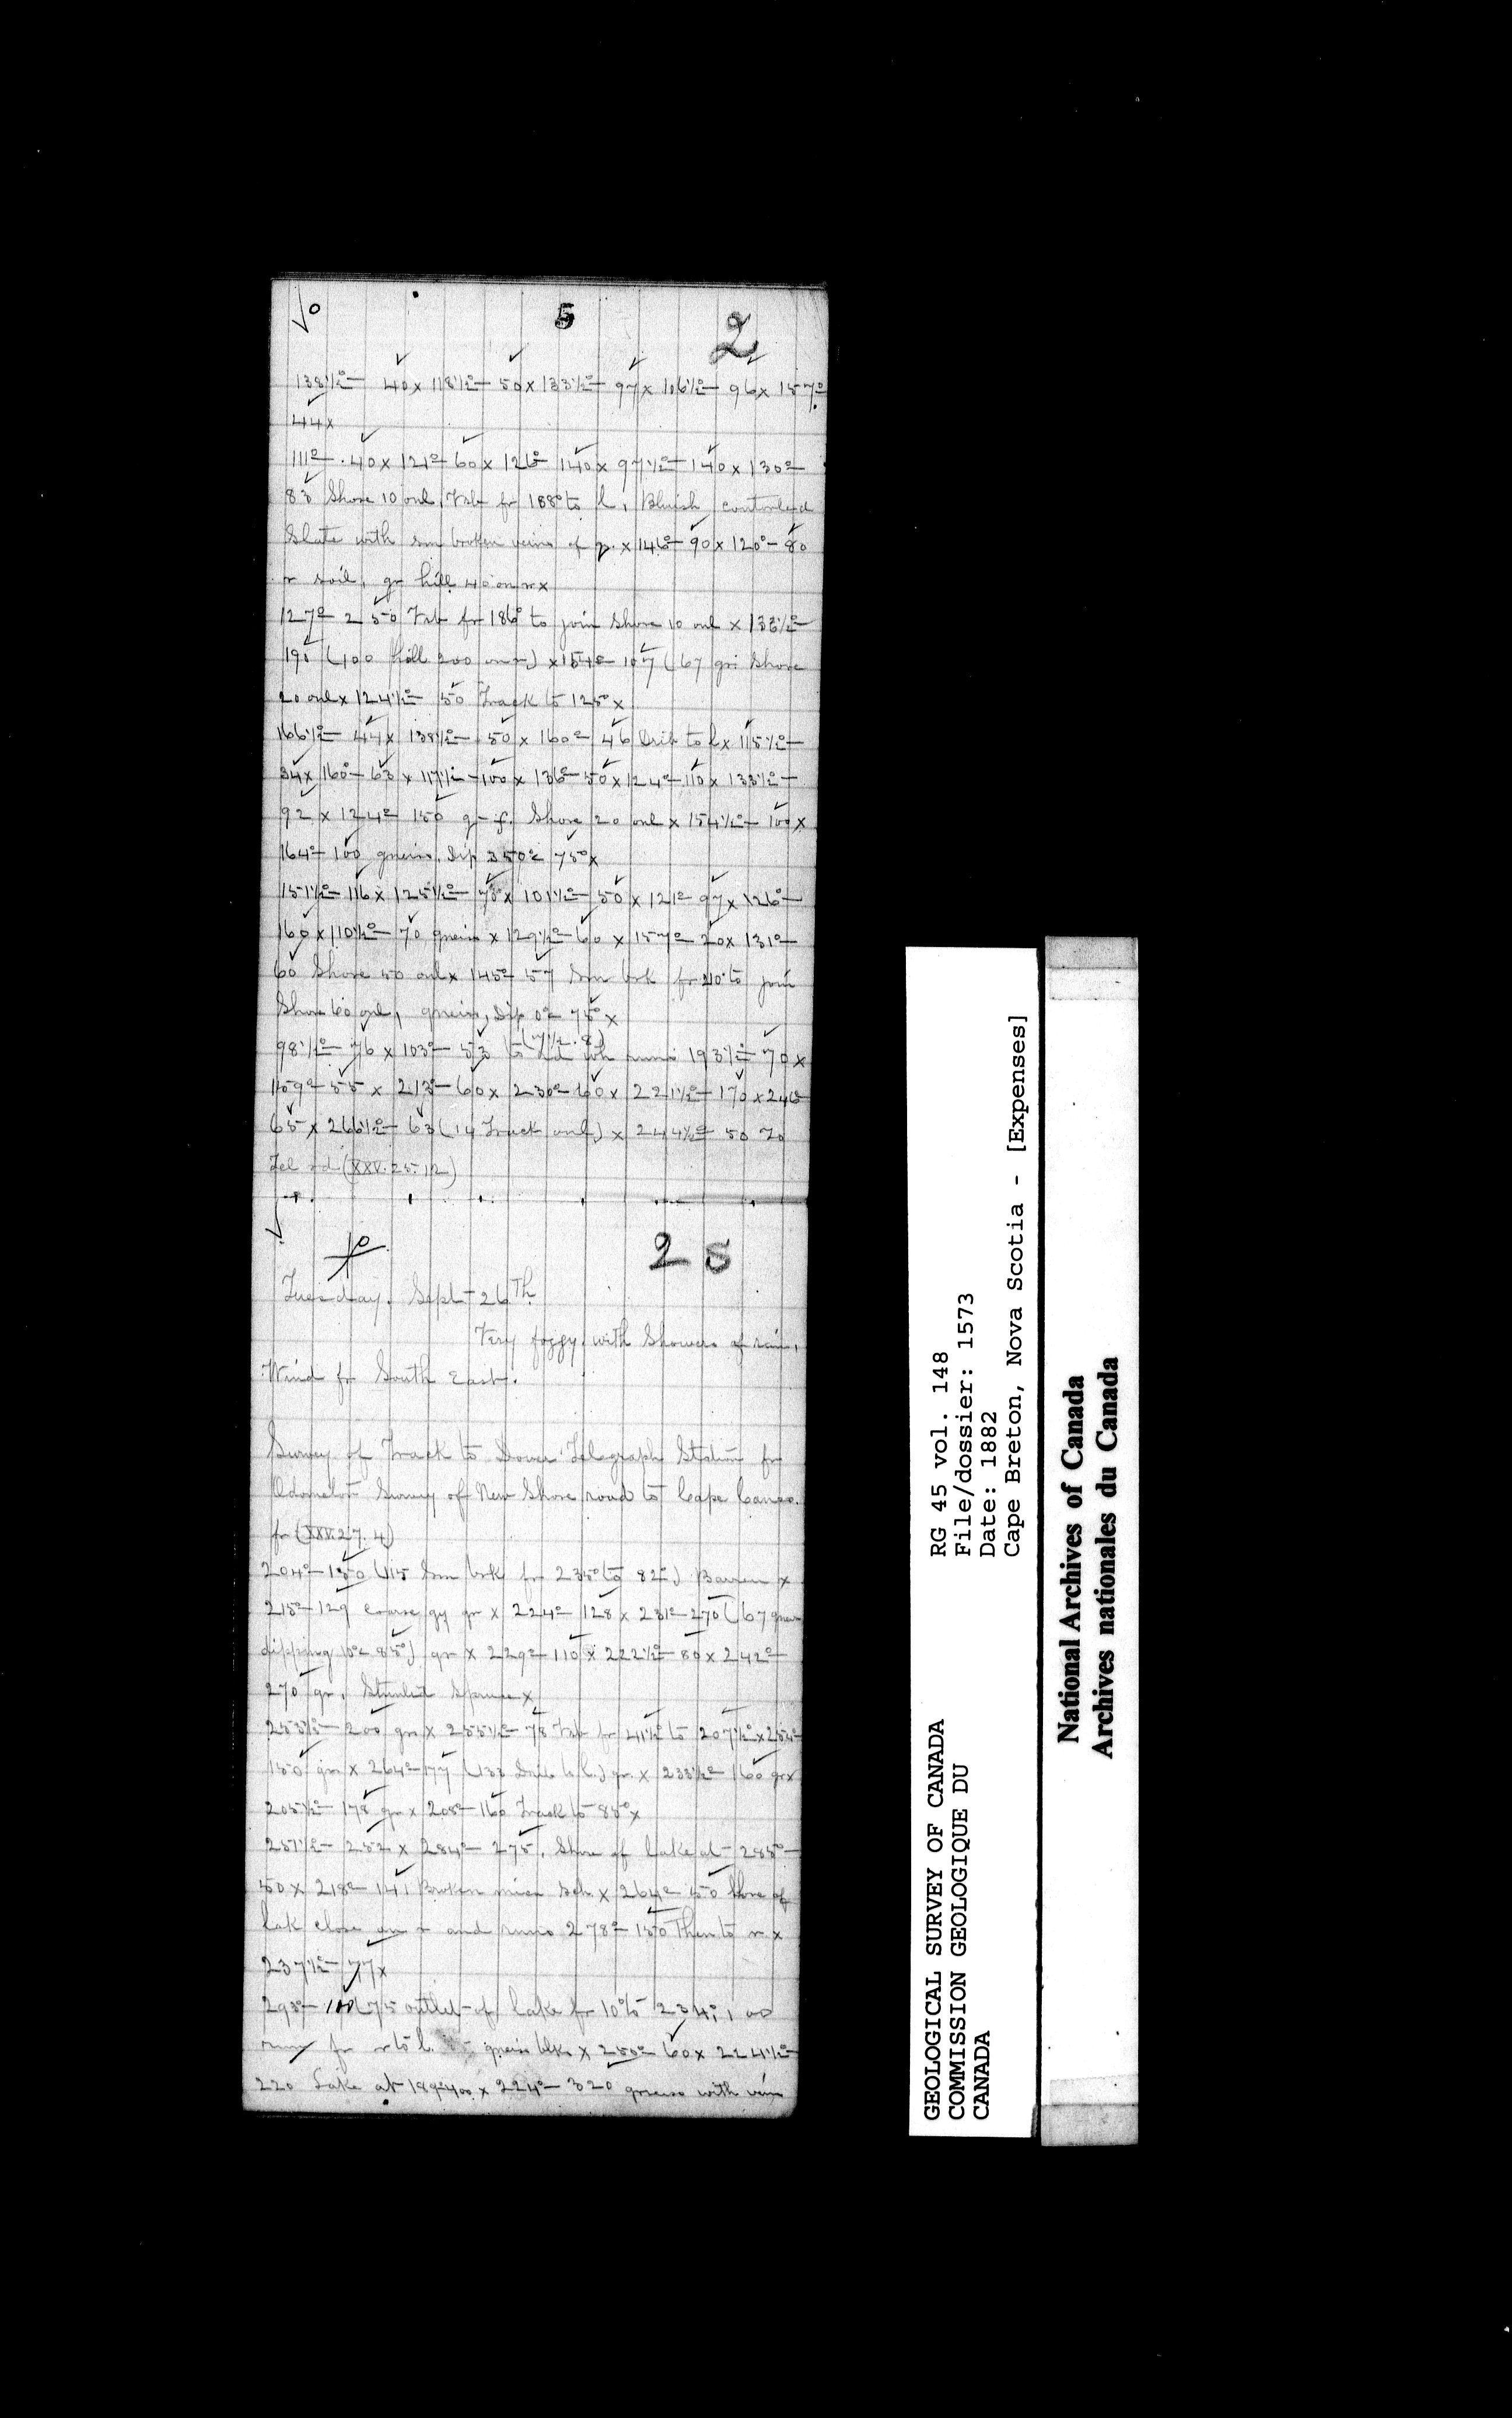 5
2
138½°- 40x 118½°- 50x 133½°- 97x 106½°- 96x 157°
44x
111°- 40x 121° 60x 126° 140x 97½°- 140x 130°-
83 Shore 10 onl, fr 188° to l, Bluish contorted
Slate with sm broken veins of q. x 146°- 90x 120°- 80
r soil, gr hill 40 on r x
127° 250 fr 186° to join Shore 10 onl x 133½°-
190 (100 hill 200 on r) x 154° 107 (67 gr Shore
20 onl x 124½°- 50 Track to 125° x
166½°- 44x 138½°- 50x 160° 46 to l x 115½°-
34x 160°- 63x 117½°- 100x 136°- 50x 124°- 110x 133½°-
92x 124° 150 Shore 20 onl x 154½°- 100x
164°- 100 gneiss. Dip 350° 75° x
151½°- 116x 125½°- 75x 101½°- 50x 121° 97x 126°-
160x 110½°- 70 gneiss x 129½°- 60x 157° 20x 131°-
60 Shore 50 onl x 145° 57 Sm brk fr 20° to join
Shore 60 onl, gneiss, Dip 0° 75° x
98½°- 76x 103°- 53 to rd runs 193½°- 70x
159°- 55x 213°- 60x 230°- 60x 221½°- 170x 246°
65x 266½°- 63 (14 Track onl) x 244½° 50 To
Tel rd (XXV.25.12)
25
Tuesday. Sept 26Th
Very foggy. with Showers of rain,
Wind fr South East.
Survey of Track to Dover Telegraph Station fr
Odometer Survey of New Shore road to Cape Canso.
fr (XXV.27.4)
204°- 150 (15 Sm brk fr 235° to 82°) Barren x
215°- 129 coarse gy gr x 224° 128x 231° 270 (67 gneiss
dipping 10° 85°) gr x 229° 110x 222½°- 80x 242°
270 gr, Stunted Spruce x
253½°- 200 gr x 255½°- 78 fr 41½° to 207½° x 254°
150 gr x 264° 177 (133 to l.) gr x 233½° 160 gr x
205½°- 178 gr x 208° 160 Track to 85° x
257½°- 252x 284°- 275. Shore of lake at 285°-
50x 218° 141 Broken mica sch x 264° 50 Shore of
lak close on r and runs 278°- 150 Then to r x
237½° 77x
293°- 75 outlet of lake fr 10° to 234°, as
run fr r to l. gneiss blks x 250° 60x 224½°-
220 Lake at 189° 400x 224° 320 gneiss with vein
GEOLOGICAL SURVEY OF CANADA
COMMISSION GEOLOGIQUE DU
CANADA
RG 45 vol. 148
File/dossier: 1573
Date: 1882
Cape Breton, Nova Scotia - [Expenses]
National Archives of Canada
Archives nationales du Canada